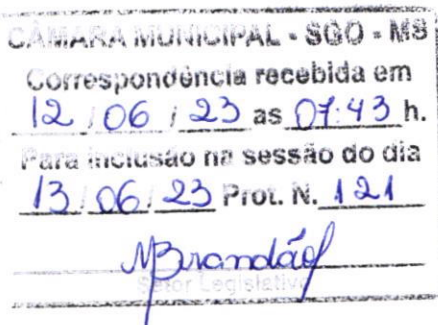 CÂMARA MUNICIPAL - SGO - MS
Correspondência recebida em
12 / 06 / 23 as 07:43 h.
Para inclusão na sessão do dia
13 / 06 / 23 Prot. N. 121
MBrandão
Setor Legislativo